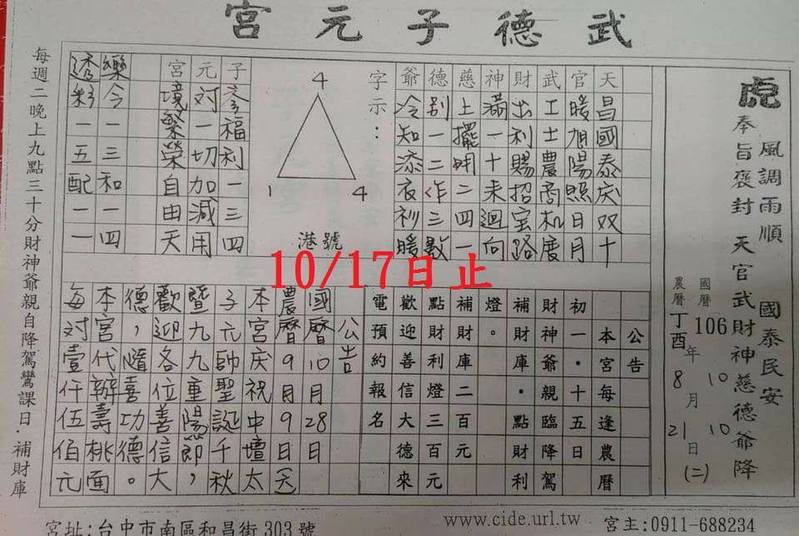 武德子元宮
虎
風調雨順 國泰民安
奉旨褒封 天官武財神慈德爺降
國曆106年10月10日(二)
農曆丁酉年8月21日
天昌國泰庆双十
官暖旭陽照日月
武工士農商机度
財出利賜招宝路
神滿一十来迴向
慈上擺明二四一
德别一二作三數
爺冷知添衣衫暖
字示：
4
1 4
港號
子福利一三四
元对一切加減用
宮境繁榮自由天
樂今一三和一四
透彩一五配一一
10/17日止
公告
本宮每逢農曆
初一・十五日
財神爺親臨降駕
補財庫・點財利
燈。
補財庫二百元
點財利燈三百元
歡迎善信大德來
電預約報名
公告
國曆10月28日
農曆9月9日
本宮庆祝中壇太
子元帥聖誕千秋
暨九九重陽節，
歡迎各位善信大
德，隨喜功德。
本宮代辦壽桃面
每对壹仟伍佰元
每週二晚上九點三十分財神爺親自降駕鸞課日・補財庫
宮址:台中市南區和昌街303號
www.cide.url.tw
宮主:0911-688234